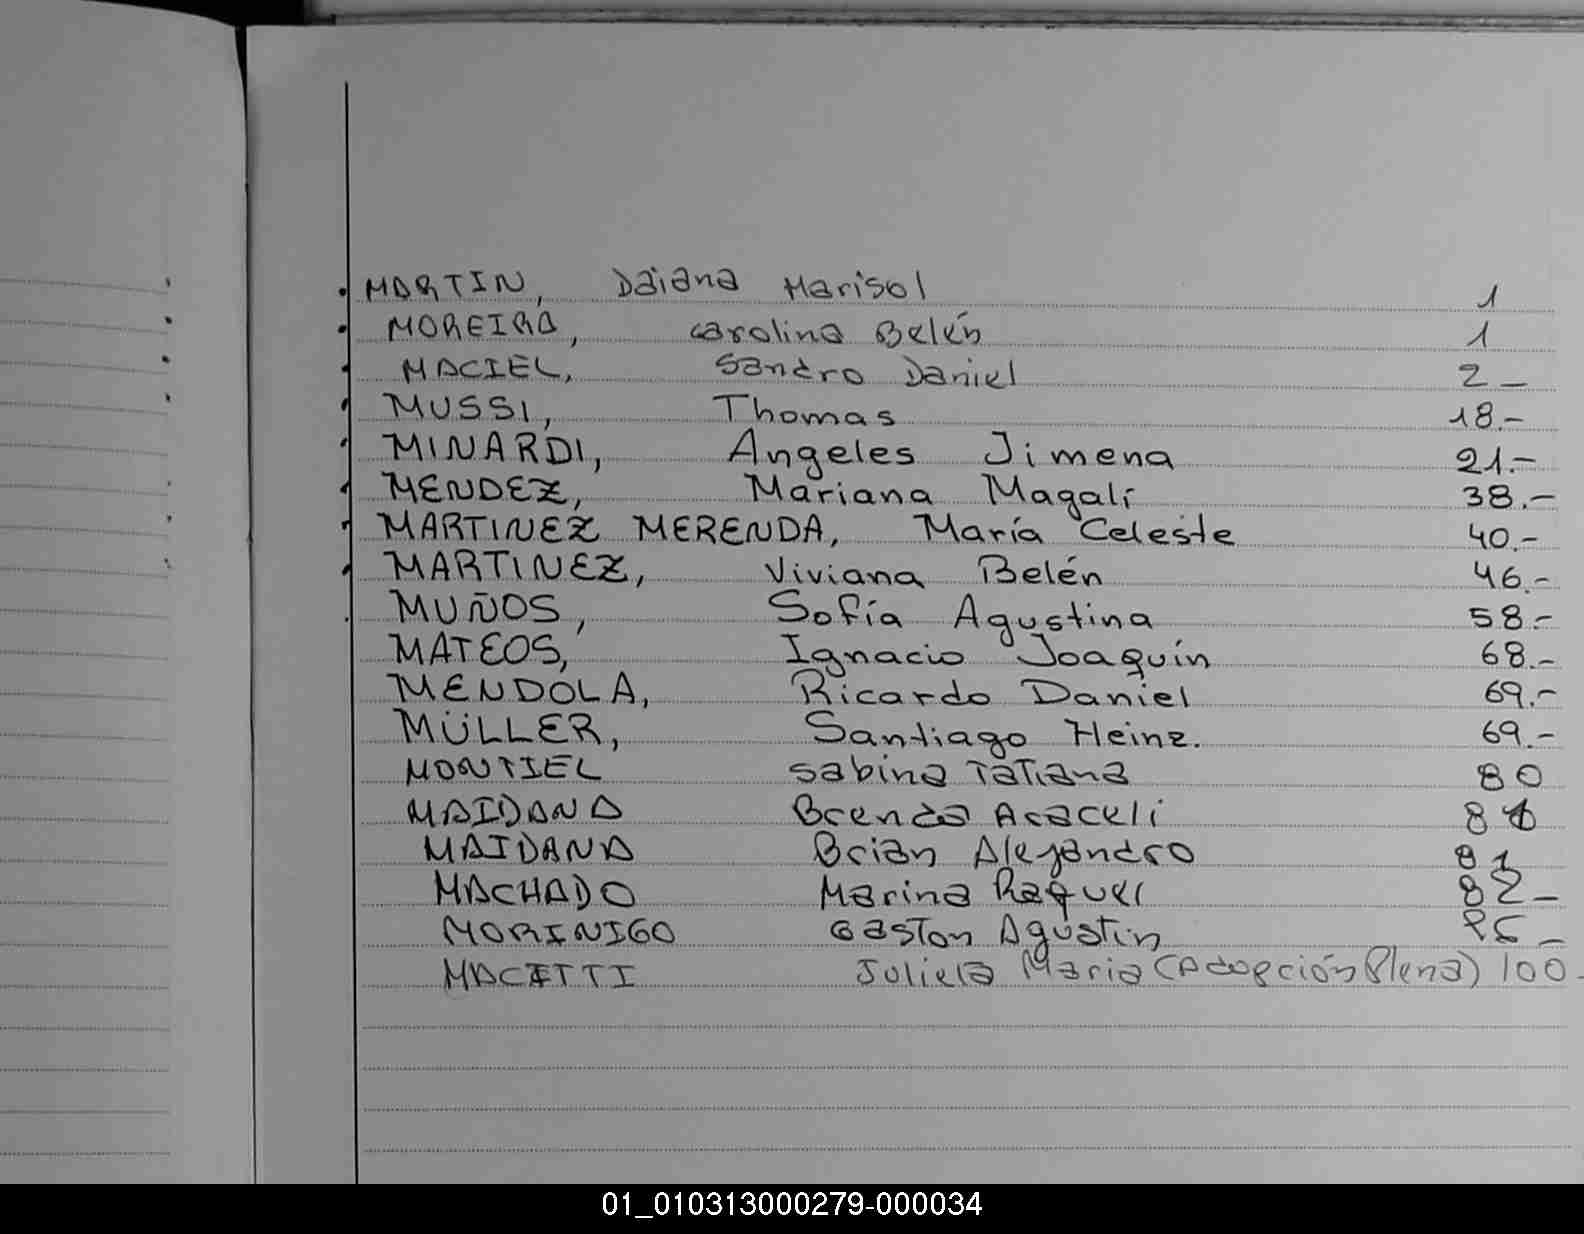 MARTIN, Daiana Marisol 1
MOREIRA, Carolina Belén 1
MACIEL, Sandro Daniel 2 -
MUSSI, Thomas 18.-
MINARDI, Angeles Jimena 21.-
MENDEZ, Mariana Magalí 38.-
MARTINEZ MERENDA, María Celeste 40.-
MARTINEZ, Viviana Belén 46.-
MUÑOS, Sofía Agustina 58.-
MATEOS, Ignacio Joaquín 68.-
MENDOLA, Ricardo Daniel 69.-
MÜLLER, Santiago Heinz. 69.-
MONTIEL Sabina Tatiana 80
MAIDANA Brenda Araceli
MAIDANA Brian Alejandro 81
MACHADO Marina Raquel 82 -
MORINIGO Gaston Agustin
MACIETTI Julieta Maria (Adopción Plena) 100 -
01_010313000279-000034